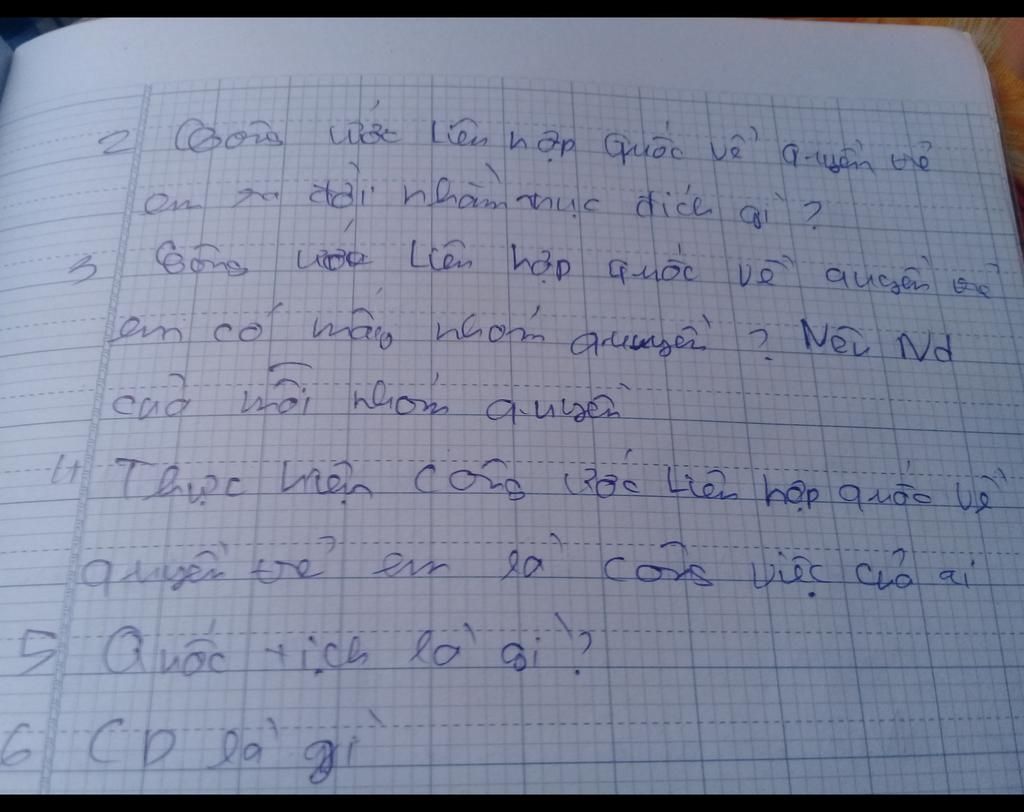 2 Công ước Liên hợp quốc về quyền trẻ
em ra đời nhằm mục đích gì?
3 Công ước Liên hợp quốc về quyền trẻ
em có mấy nhóm quyền? Nêu Nd
của mỗi nhóm quyền
4 Thực hiện công ước Liên hợp quốc về
quyền trẻ em là công việc của ai
5 Quốc tịch là gì?
6 CD là gì